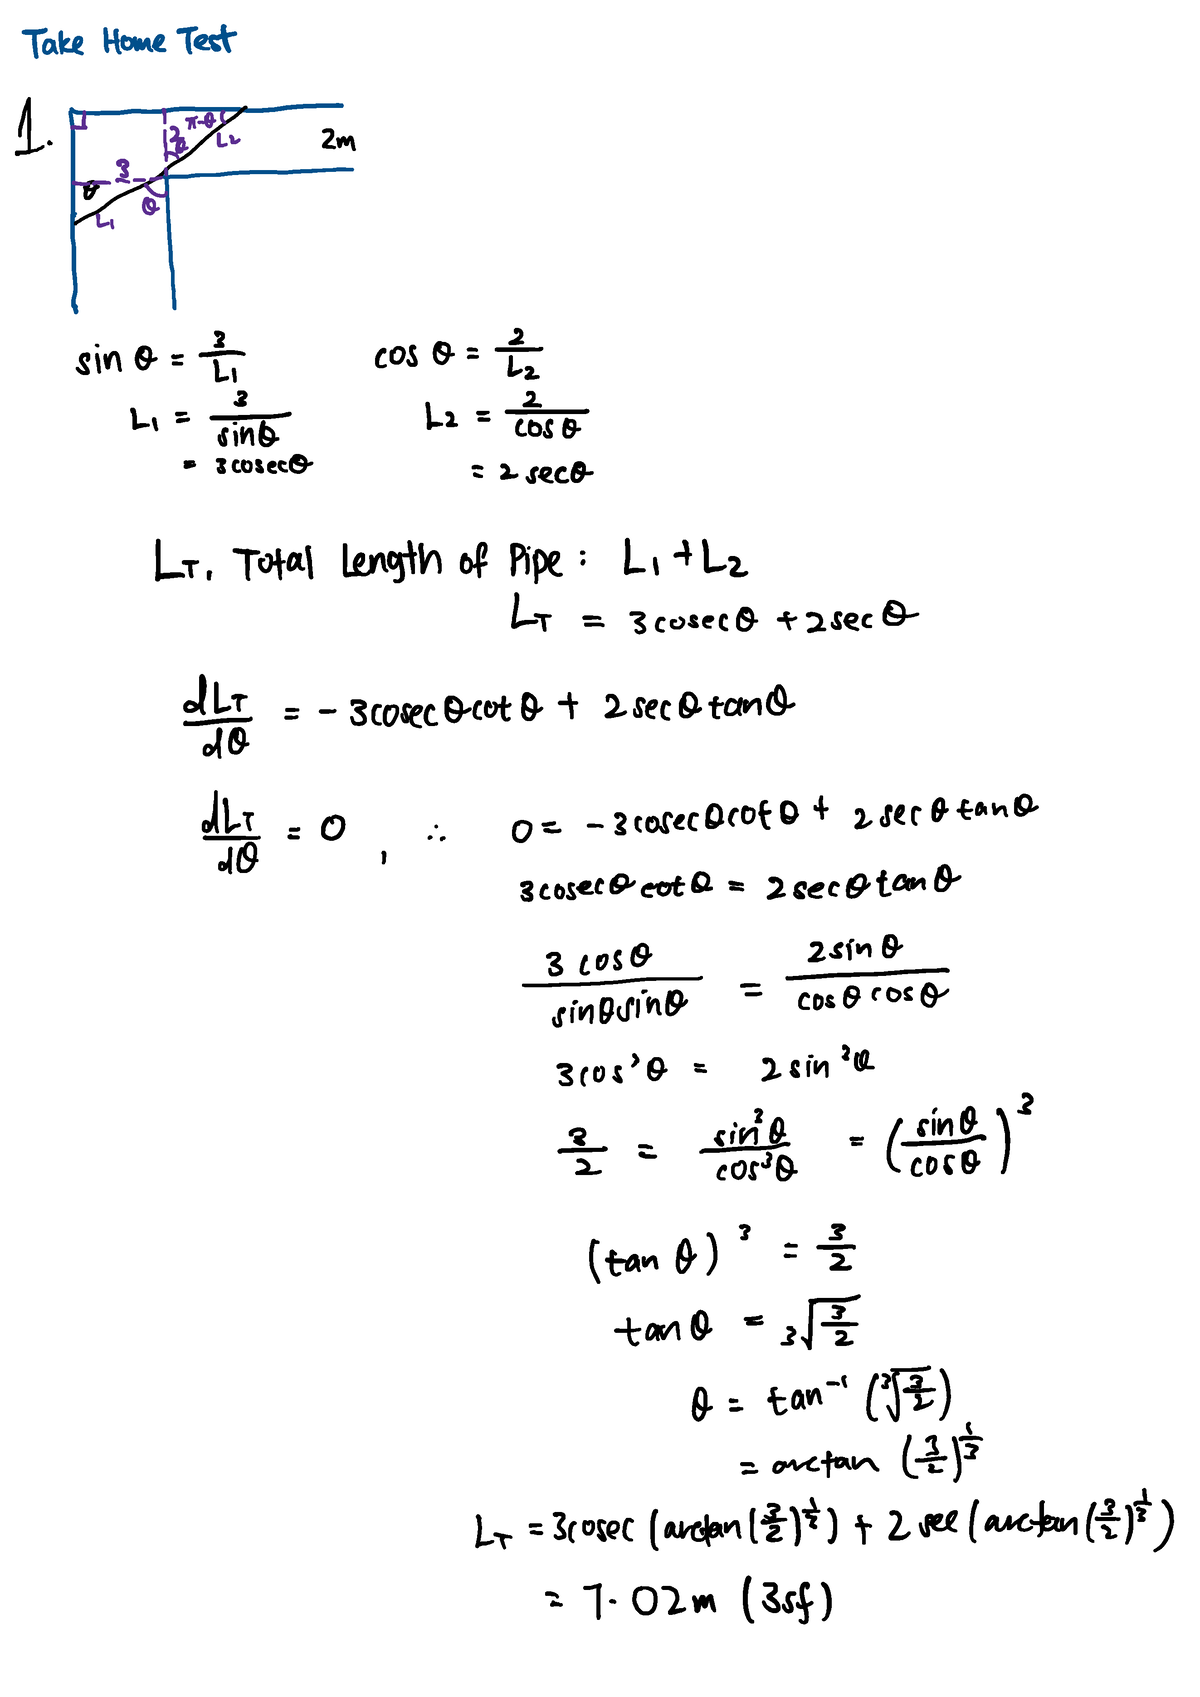 Take Home Test
1.
2 π-θ
θ L2 2m
3
θ θ
L1
sin θ = 3/L1 cos θ = 2/L2
L1 = 3/sinθ L2 = 2/cosθ
= 3cosecθ = 2secθ
LT, Total Length of Pipe : L1 + L2
LT = 3cosecθ + 2secθ
dLT/dθ = -3cosecθcotθ + 2secθtanθ
dLT/dθ = 0 , ∴ 0 = -3cosecθcotθ + 2secθtanθ
3cosecθcotθ = 2secθtanθ
3cosθ/sinθsinθ = 2sinθ/cosθcosθ
3cos³θ = 2sin³θ
3/2 = sin³θ/cos³θ = (sinθ/cosθ)³
(tan θ)³ = 3/2
tanθ = ³√(3/2)
θ = tan⁻¹(³√(3/2))
= arctan (3/2)^(1/3)
LT = 3cosec(arctan(3/2)^(1/3)) + 2sec(arctan(3/2)^(1/3))
= 7.02m (3sf)